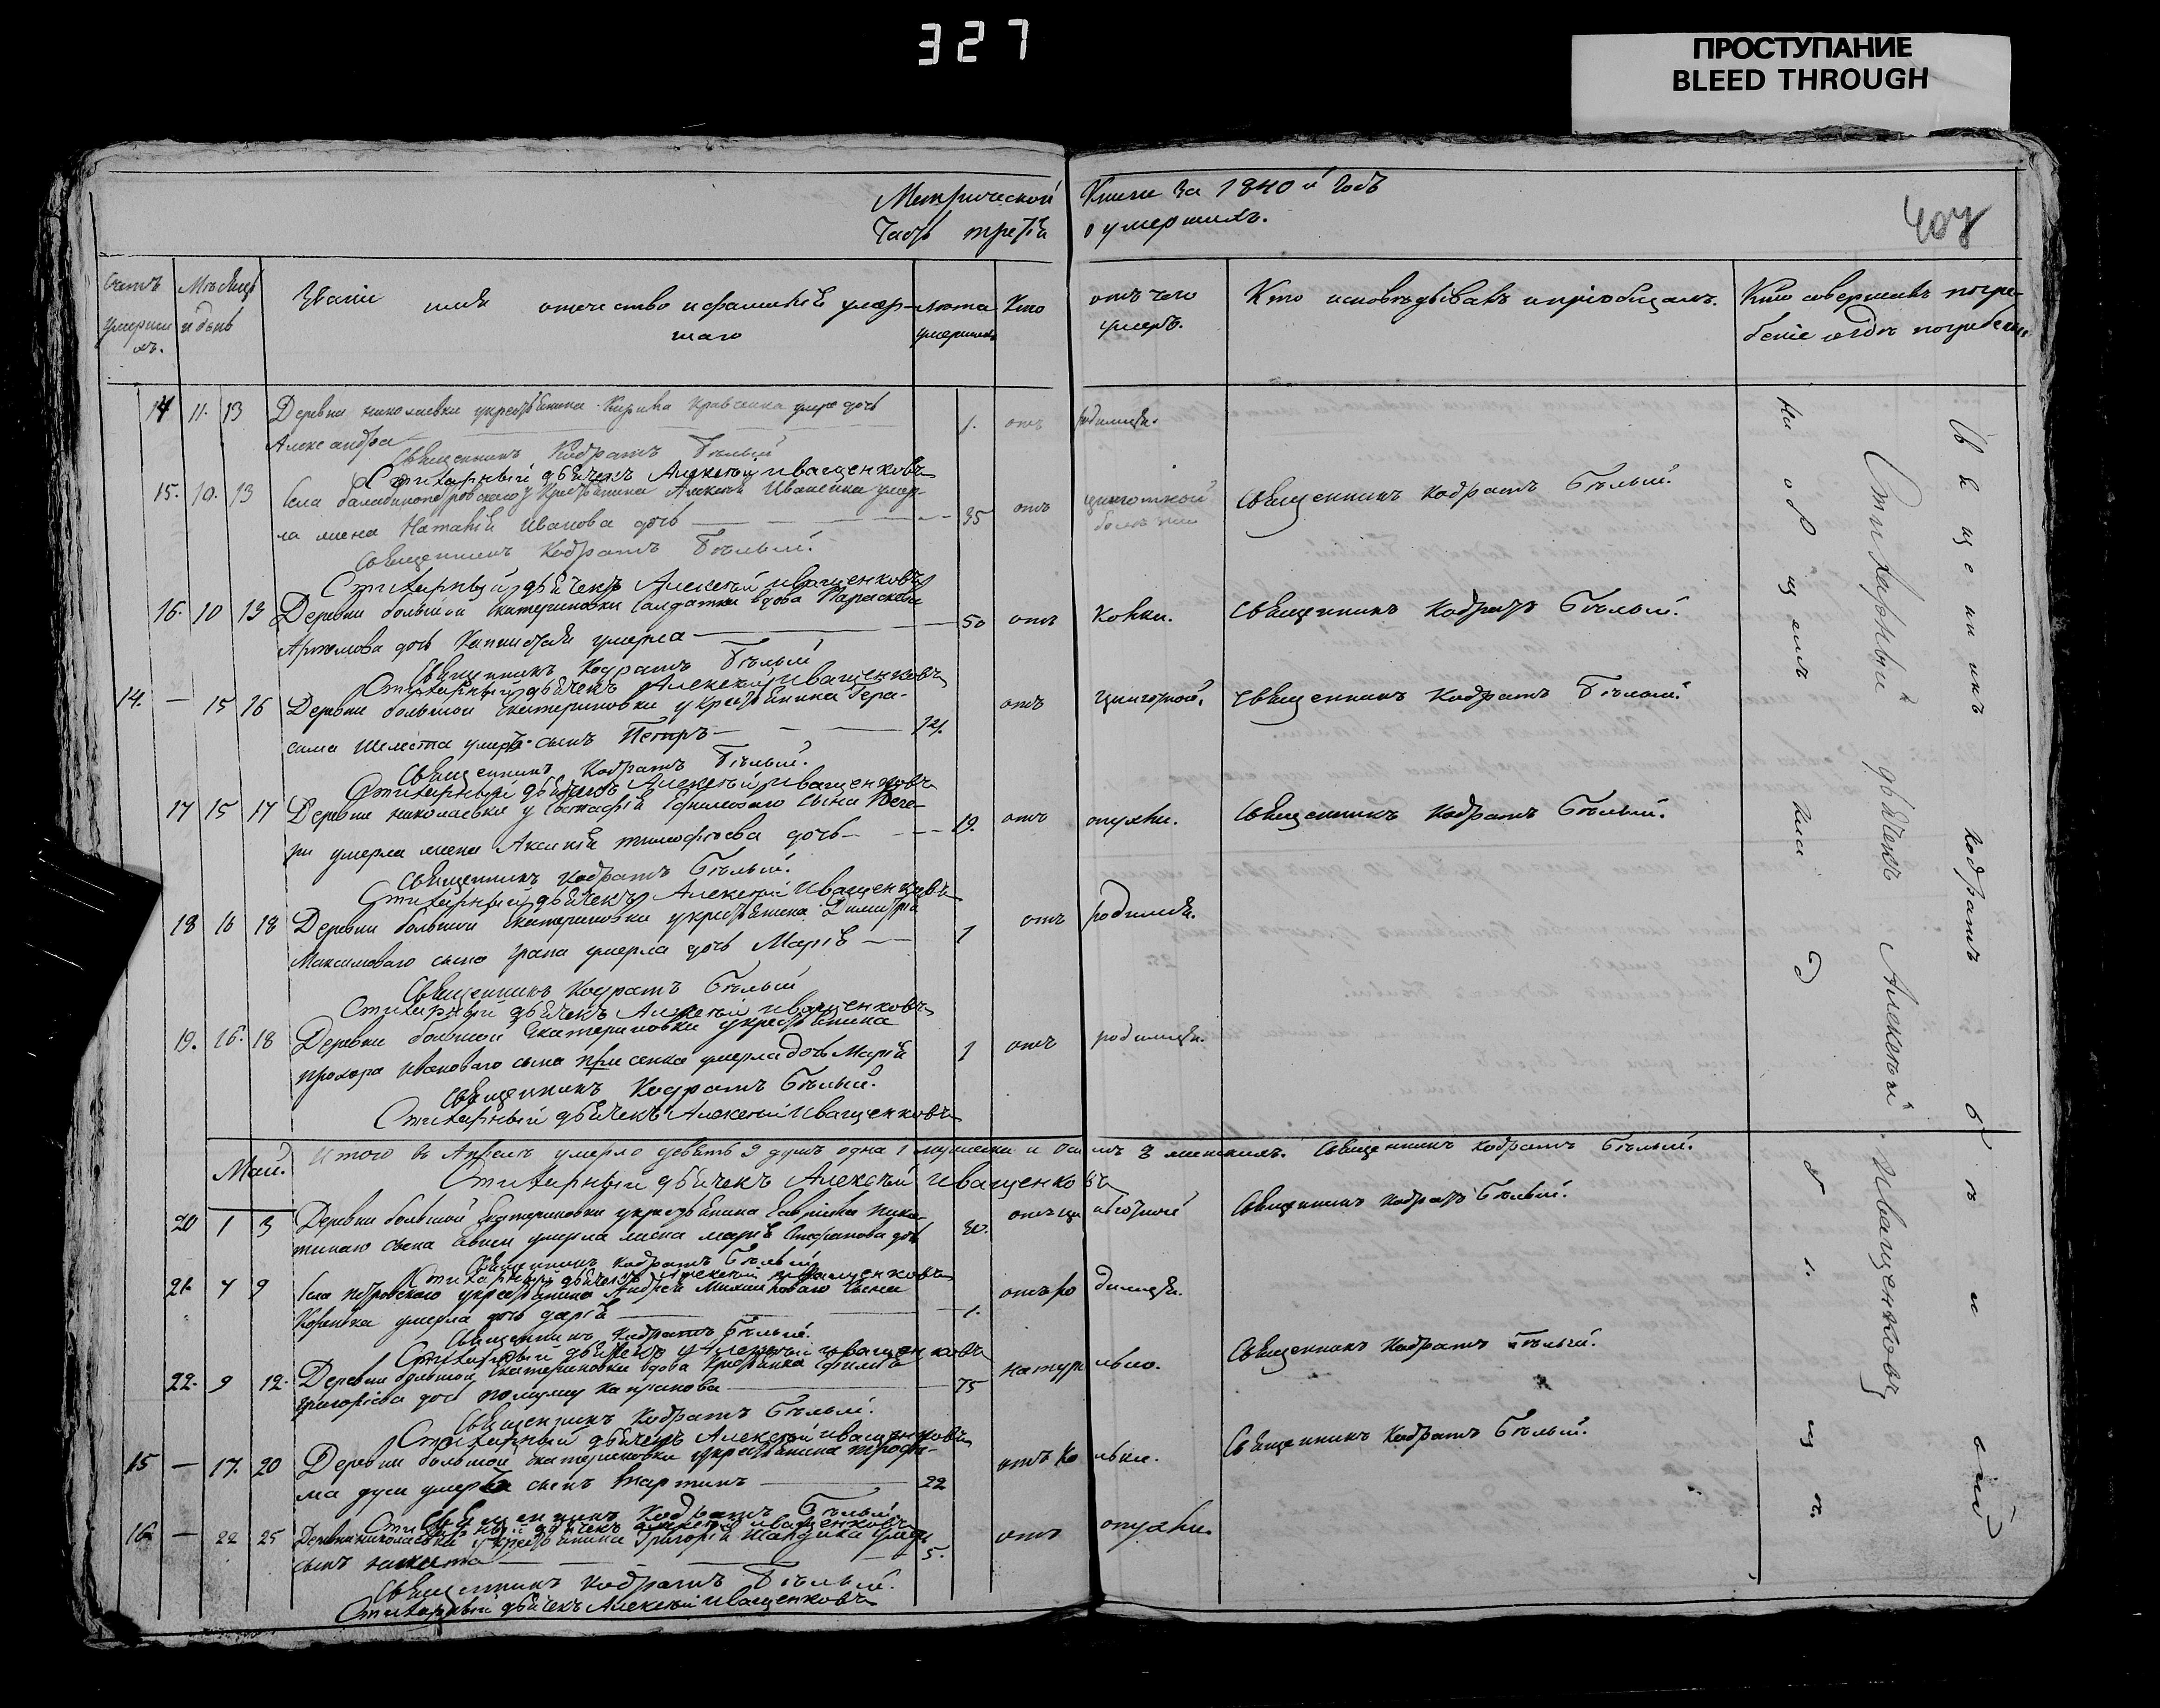 327
ПРОСТУПАНИЕ
BLEED THROUGH
Метрической Книги за 1840й годъ
Часть третія о умершихъ.
407
Счетъ умершихъ.
Мѣсяцъ и день
Званіе имя отечество и фамилія умершаго
лѣта умершихъ
Кто
отъ чего умеръ.
Кто исповѣдывалъ и пріобщалъ.
Кто совершалъ погребеніе и гдѣ погребены
14 11. 13 Деревни николаевки у крестьянина Кирила Кравченка умре дочь 1. отъ родимца.
Александра
Священникъ Кодратъ Бѣлый
Стихарный дьячекъ Алексѣй Иващенковъ
15. 10. 13 Села балабинопетровскаго у Крестьянина Алексѣя Иваненка умер- 35 отъ цинготной болезни Священникъ Кодратъ Бѣлый.
ла жена Наталія Иванова дочь
Священникъ Кодратъ Бѣлый.
Стихарный дьячекъ Алексѣй Иващенковъ
16. 10 13 Деревни большой екатериновки Салдатка вдова Параскева 50 отъ Колики. Священникъ Кодратъ Бѣлый.
Артемова дочь умерла
Священникъ Кодратъ Бѣлый
Стихарный дьячекъ Алексѣй Иващенковъ
14. — 15 16 Деревни большой екатериновки у крестьянина Гера- отъ цинготной. Священникъ Кодратъ Бѣлый.
сима Шелеста умеръ сынъ Петръ
Священникъ Кодратъ Бѣлый.
Стихарный дьячекъ Алексѣй Иващенковъ
17 15 17 Деревни николаевки у Евстафія сына 19. отъ опухли. Священникъ Кодратъ Бѣлый.
умерла жена Аксинія тимофѣева дочь
Священникъ Кодратъ Бѣлый.
Стихарный дьячекъ Алексѣй Иващенковъ
18 16 18 Деревни большой екатериновки у крестьянина Димитрія 1 отъ родимца.
Максимоваго сына умерла дочь Марія
Священникъ Кодратъ Бѣлый
Стихарный дьячекъ Алексѣй Иващенковъ
19. 16. 18 Деревни большой екатериновки у крестьянина 1 отъ родимца.
прохора Иванова сына умерла дочь Марія
Священникъ Кодратъ Бѣлый.
Стихарный дьячекъ Алексѣй Иващенковъ
Итого въ Апрелѣ умерло девять 9 душъ одна 1 мужеска и осмь 8 женскихъ. Священникъ Кодратъ Бѣлый.
Стихарный дьячекъ Алексѣй Иващенковъ
Май.
20 1 3 Деревни большой Екатериновки у крестьянина Гавріила отъ цинготной Священникъ Кодратъ Бѣлый.
сына умерла жена марія Стефанова дочь
Священникъ Кодратъ Бѣлый
Стихарный дьячекъ Алексѣй Иващенковъ
21. 7 9 Села петровскаго у крестьянина Андрея сына 1. отъ родимца.
умерла дочь дарія
Священникъ Кодратъ Бѣлый.
Стихарный дьячекъ Алексѣй Иващенковъ
22. 9 12. Деревни большой Екатериновки вдова Крестьянка 75 натурально. Священникъ Кодратъ Бѣлый.
григоріева дочь по мужу
Священникъ Кодратъ Бѣлый.
Стихарный дьячекъ Алексѣй Иващенковъ
15 — 17. 20 Деревни большой екатериновки у крестьянина трофи- 22 отъ Кольки. Священникъ Кодратъ Бѣлый.
ма умеръ сынъ мартинъ
Священникъ Кодратъ Бѣлый
Стихарный дьячекъ Алексѣй Иващенковъ
16 — 22 25 Деревни николаевки у крестьянина Григорія умеръ 5. отъ опухли.
сынъ никита
Священникъ Кодратъ Бѣлый.
Стихарный дьячекъ Алексѣй Иващенковъ
На общемъ кладбищѣ.
Стихарный дьячекъ Алексѣй Иващенковъ
Священникъ Кодратъ Бѣлый